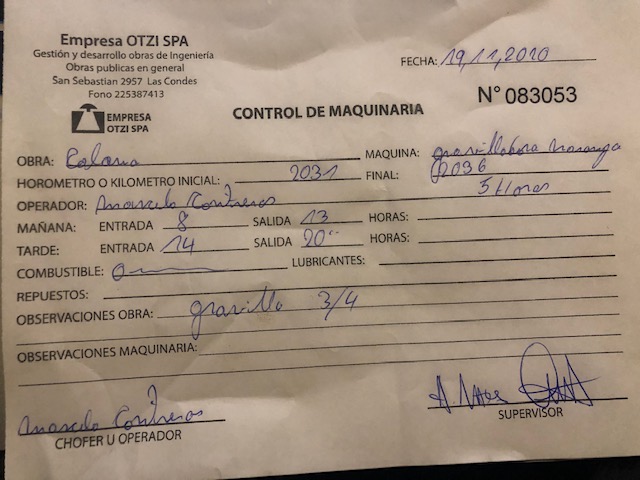 Empresa OTZI SPA
Gestión y desarrollo obras de Ingeniería
Obras publicas en general
San Sebastian 2957 Las Condes
Fono 225387413
EMPRESA
OTZI SPA
FECHA: 19,11,2020
CONTROL DE MAQUINARIA
N° 083053
OBRA: MAQUINA:
HOROMETRO O KILOMETRO INICIAL: 2031 FINAL: 2036
OPERADOR: Marcelo Contreras 5 Horas
MAÑANA: ENTRADA 8 SALIDA 13 HORAS:
TARDE: ENTRADA 14 SALIDA 20 HORAS:
COMBUSTIBLE: LUBRICANTES:
REPUESTOS:
OBSERVACIONES OBRA: gravilla 3/4
OBSERVACIONES MAQUINARIA:
Marcelo Contreras
CHOFER U OPERADOR SUPERVISOR